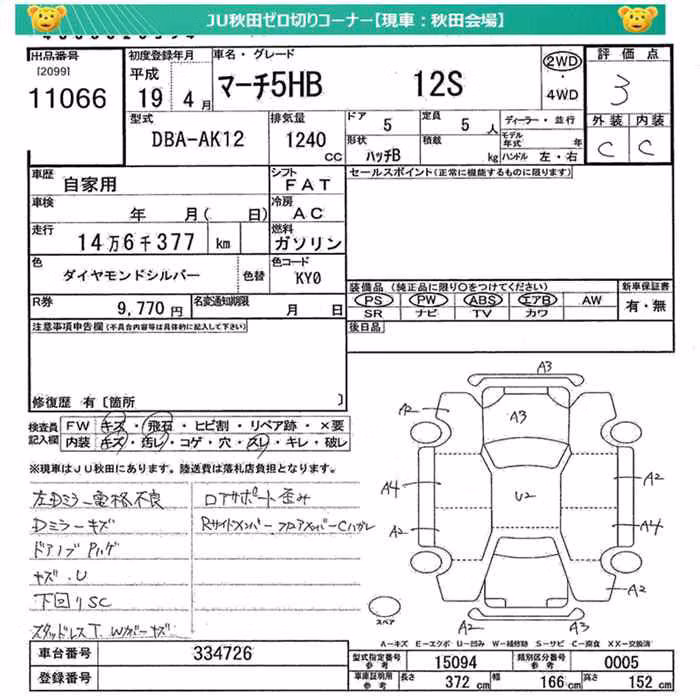 JU秋田ゼロ切りコーナー【現車：秋田会場】
出品番号
[2099]
11066
初度登録年月
平成
19 4月
車名・グレード
マーチ5HB 12S
2WD
・
4WD
評価点
3
外装 内装
C C
型式
DBA-AK12
排気量
1240
CC
ドア
5
定員
5人
形状
ハッチB
積載
kg
ディーラー・並行
モデル年式 年
ハンドル 左・右
車歴
自家用
シフト
FAT
車検
年 月( 日)
冷房
AC
走行
14万6千377 km
燃料
ガソリン
色
ダイヤモンドシルバー
色替
色コード
KY0
R券
9,770円
名変通知期限
月 日
セールスポイント(正常に機能するものに限ります)
装備品(純正品に限り○をつけてください)
PS PW ABS エアB AW
SR ナビ TV カワ
新車保証書
有・無
後日品
注意事項申告欄(不具合内容等は具体的に記入して下さい)
修復歴 有〔箇所 〕
検査員記入欄
FW キズ・飛石・ヒビ割・リペア跡・×要
内装 キズ・汚レ・コゲ・穴・スレ・キレ・破レ
※現車はJU秋田にあります。陸送費は落札店負担となります。
左Dミラー電格不良
Dミラーキズ
ドアノブPハゲ
キズ.U
下回りSC
スタッドレスT.
ロアサポート歪み
Rサイドメンバー フロアメンバーCハガレ
A3
A3
A2
A4
A2
U2
A2
A4
A2
A2
A3
スペア
A=キズ E=エクボ U=凹み W=補修跡 S=サビ C=腐食 XX=交換済
車台番号
334726
登録番号
型式指定番号参考
15094
類別区分番号参考
0005
車庫証明用参考
長さ 372cm 幅 166cm 高さ 152cm